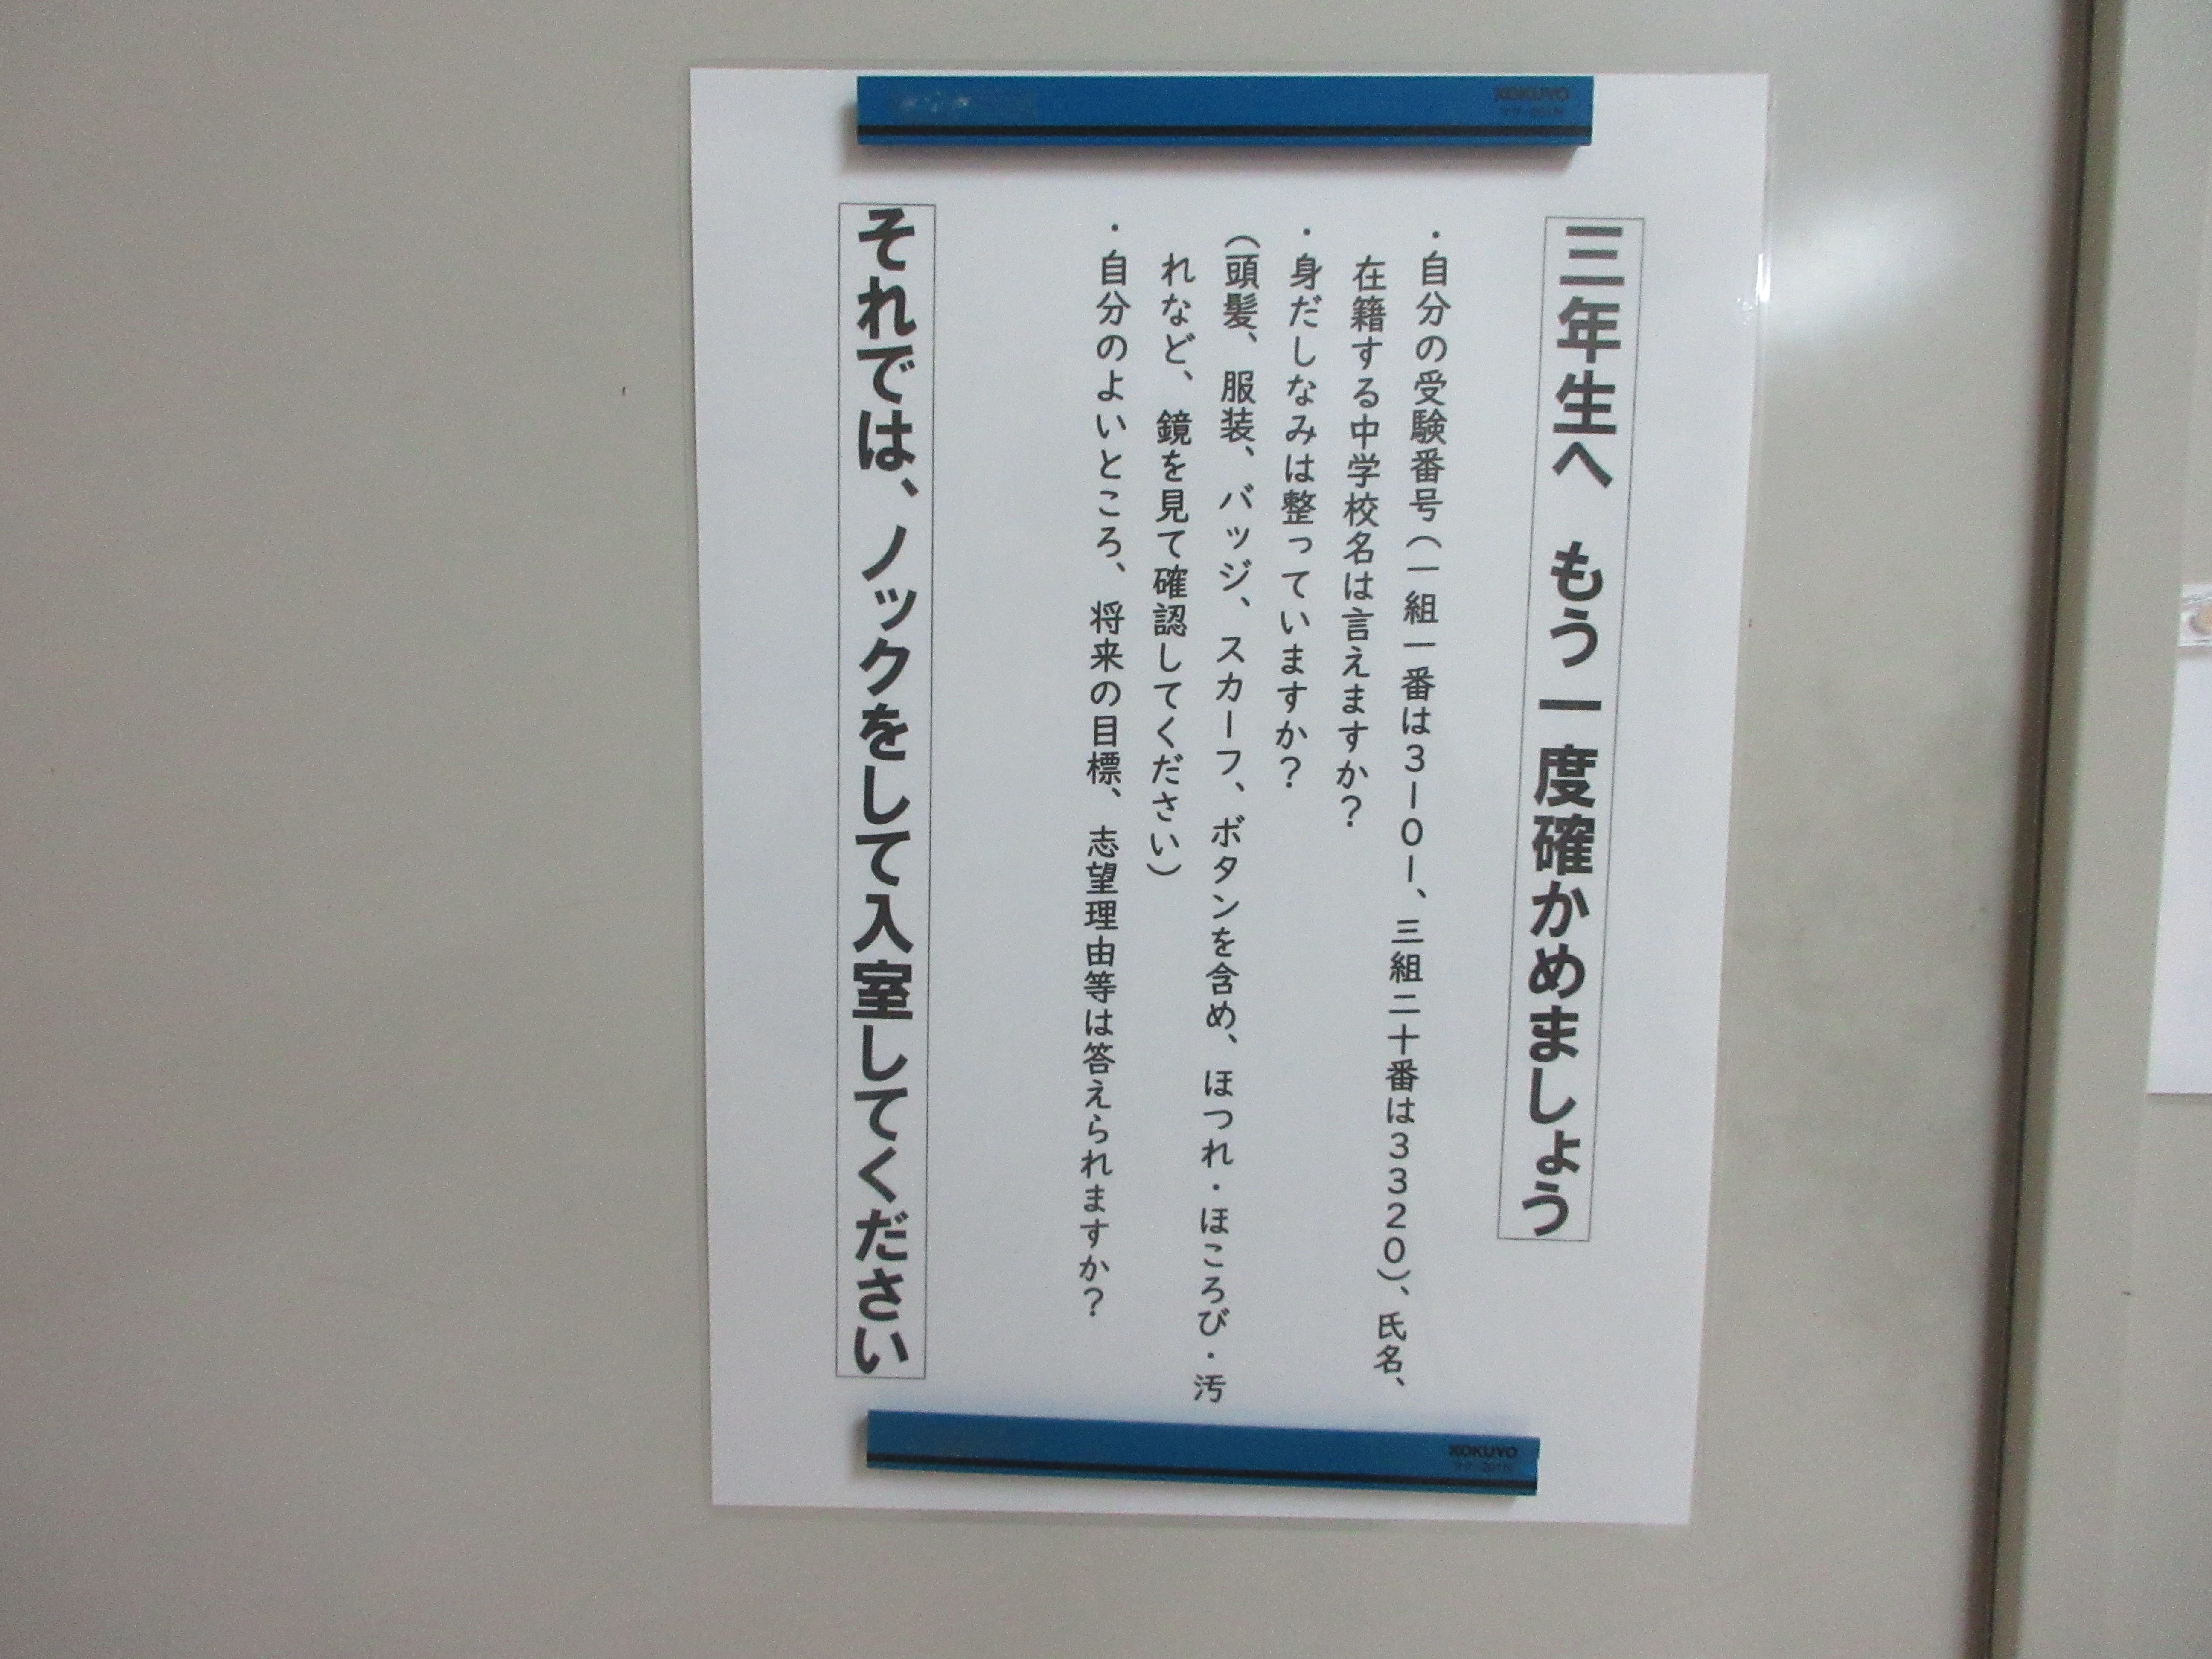 三年生へ　もう一度確かめましょう
・自分の受験番号（一組一番は３１０１、三組二十番は３３２０）、氏名、
在籍する中学校名は言えますか？
・身だしなみは整っていますか？
（頭髪、服装、バッジ、スカーフ、ボタンを含め、ほつれ・ほころび・汚
れなど、鏡を見て確認してください）
・自分のよいところ、将来の目標、志望理由等は答えられますか？
それでは、ノックをして入室してください
KOKUYO
KOKUYO